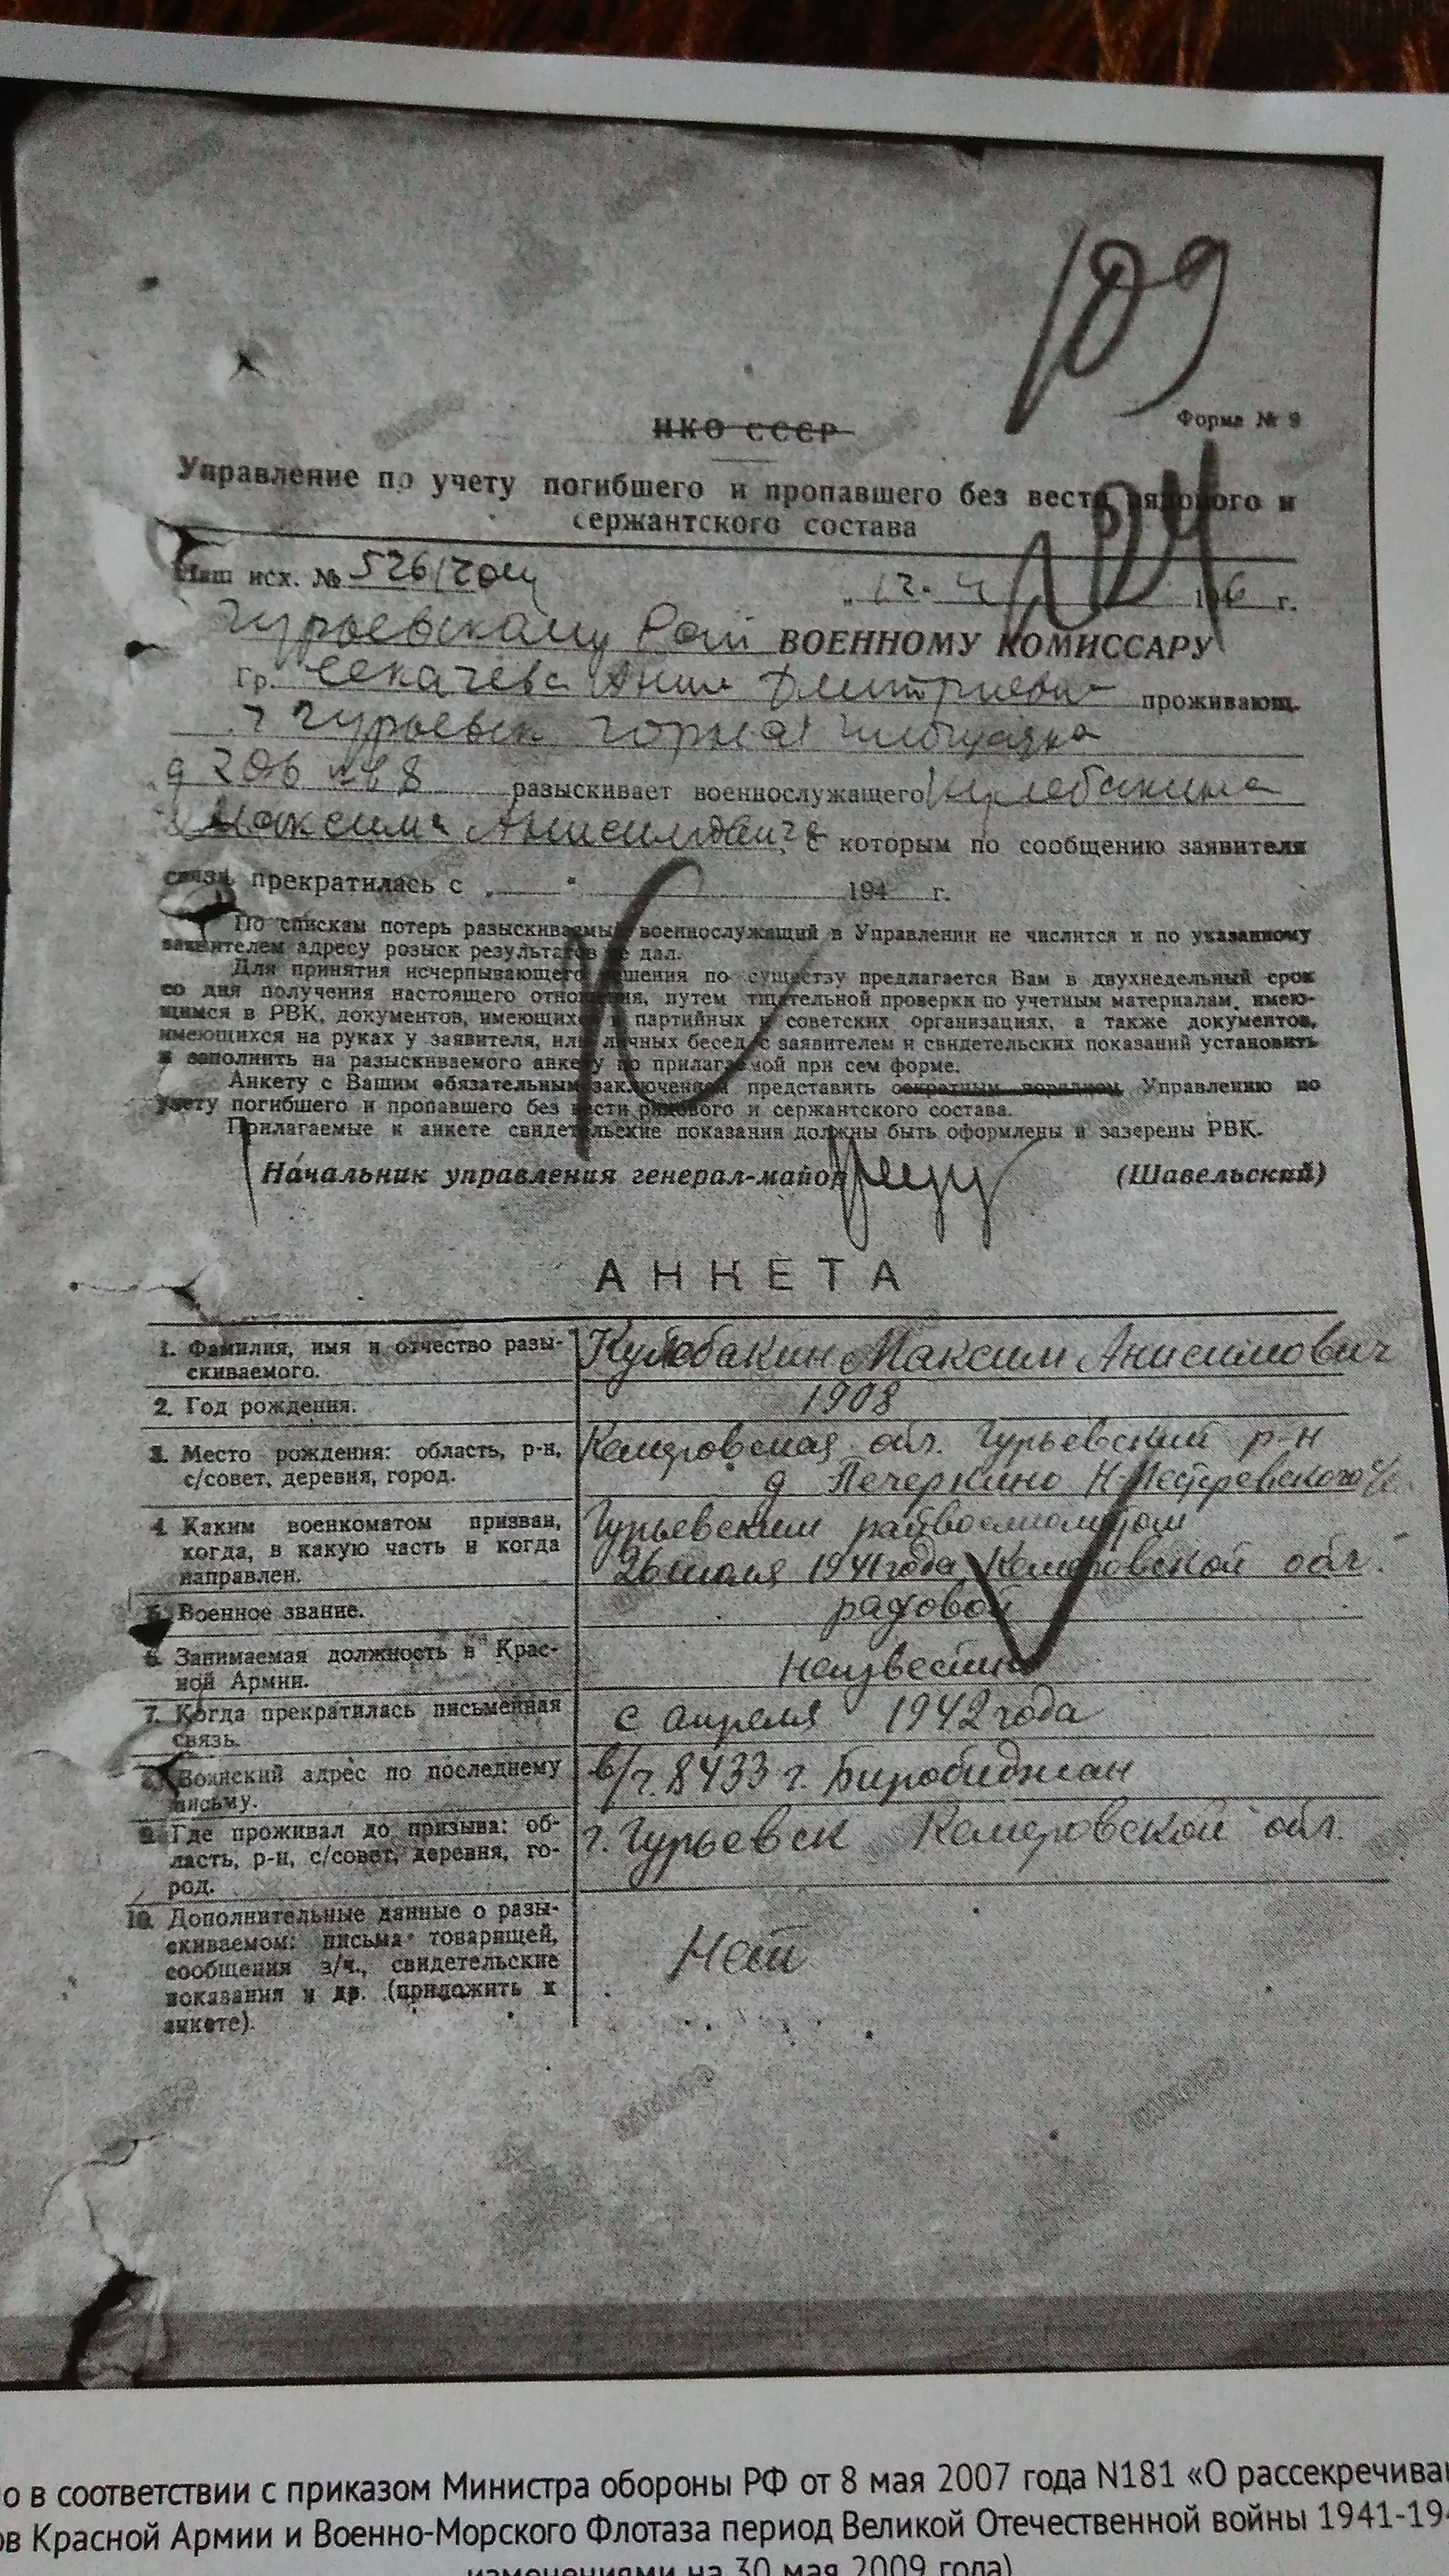 109
Форма № 9
НКО СССР
Управление по учету погибшего и пропавшего без вести рядового и
сержантского состава
Наш исх. № 526
"12. 4 6 г.
Гурьевскому Рай ВОЕННОМУ КОМИССАРУ
гр. Секачева Анна Дмитриевна проживающ.
г Гурьевск
д 206 кв 8 разыскивает военнослужащего Кулебакина
Максима Анисимовича, с которым по сообщению заявителя
связь прекратилась с „ " 194 г.
По спискам потерь разыскиваемый военнослужащий в Управлении не числится и по указанному
заявителем адресу розыск результатов не дал.
Для принятия исчерпывающего решения по существу предлагается Вам в двухнедельный срок
со дня получения настоящего отношения, путем тщательной проверки по учетным материалам, имею-
щимся в РВК, документов, имеющихся в партийных и советских организациях, а также документов,
имеющихся на руках у заявителя, или личных бесед с заявителем и свидетельских показаний установить
и заполнить на разыскиваемого анкету по прилагаемой при сем форме.
Анкету с Вашим обязательным заключением представить секретным порядком Управлению по
учету погибшего и пропавшего без вести рядового и сержантского состава.
Прилагаемые к анкете свидетельские показания должны быть оформлены и заверены РВК.
Начальник управления генерал-майор (Шавельский)
АНКЕТА
1. Фамилия, имя и отчество разы- Кулебакин Максим Анисимович
скиваемого.
2. Год рождения. 1908
3. Место рождения: область, р-н, Кемеровская обл. Гурьевский р-н
с/совет, деревня, город. д Печеркино Н-Пестеревского с/с.
4. Каким военкоматом призван, Гурьевским райвоенкоматом
когда, в какую часть и когда 26 июля 1941 года Кемеровской обл.
направлен.
5. Военное звание. рядовой
6. Занимаемая должность в Крас- неизвестно
ной Армии.
7. Когда прекратилась письменная с апреля 1942 года
связь.
8. Воинский адрес по последнему в/ч. 8433 г. Биробиджан
письму.
9. Где проживал до призыва: об- г. Гурьевск Кемеровской обл.
ласть, р-н, с/совет, деревня, го-
род.
10. Дополнительные данные о разы-
скиваемом: письма товарищей, Нет
сообщения з/ч., свидетельские
показания и др. (приложить к
анкете).
о в соответствии с приказом Министра обороны РФ от 8 мая 2007 года N181 «О рассекречива
ов Красной Армии и Военно-Морского Флотаза период Великой Отечественной войны 1941-19
изменениями на 30 мая 2009 года)